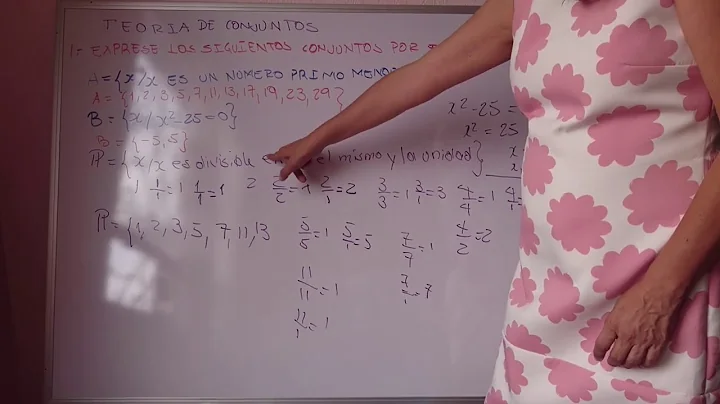 TEORIA DE CONJUNTOS
1- EXPRESE LOS SIGUIENTOS CONJUNTOS POR
A={x/x ES UN NUMERO PRIMO MENOR
A={1,2,3,5,7,11,13,17,19,23,29}
x²-25=
B={x/x²-25=0}
x²=25
B={-5,5}
x
P={x/x es divisible el mismo y la unidad}
1 1/1=1 1/1=1 2 2/2=1 2/1=2 3/3=1 3/1=3 4/4=1 4/1
P={1,2,3,5,7,11,13 5/5=1 5/1=5 7/7=1 4/2=2
11/11=1 7/1=7
11/1=1